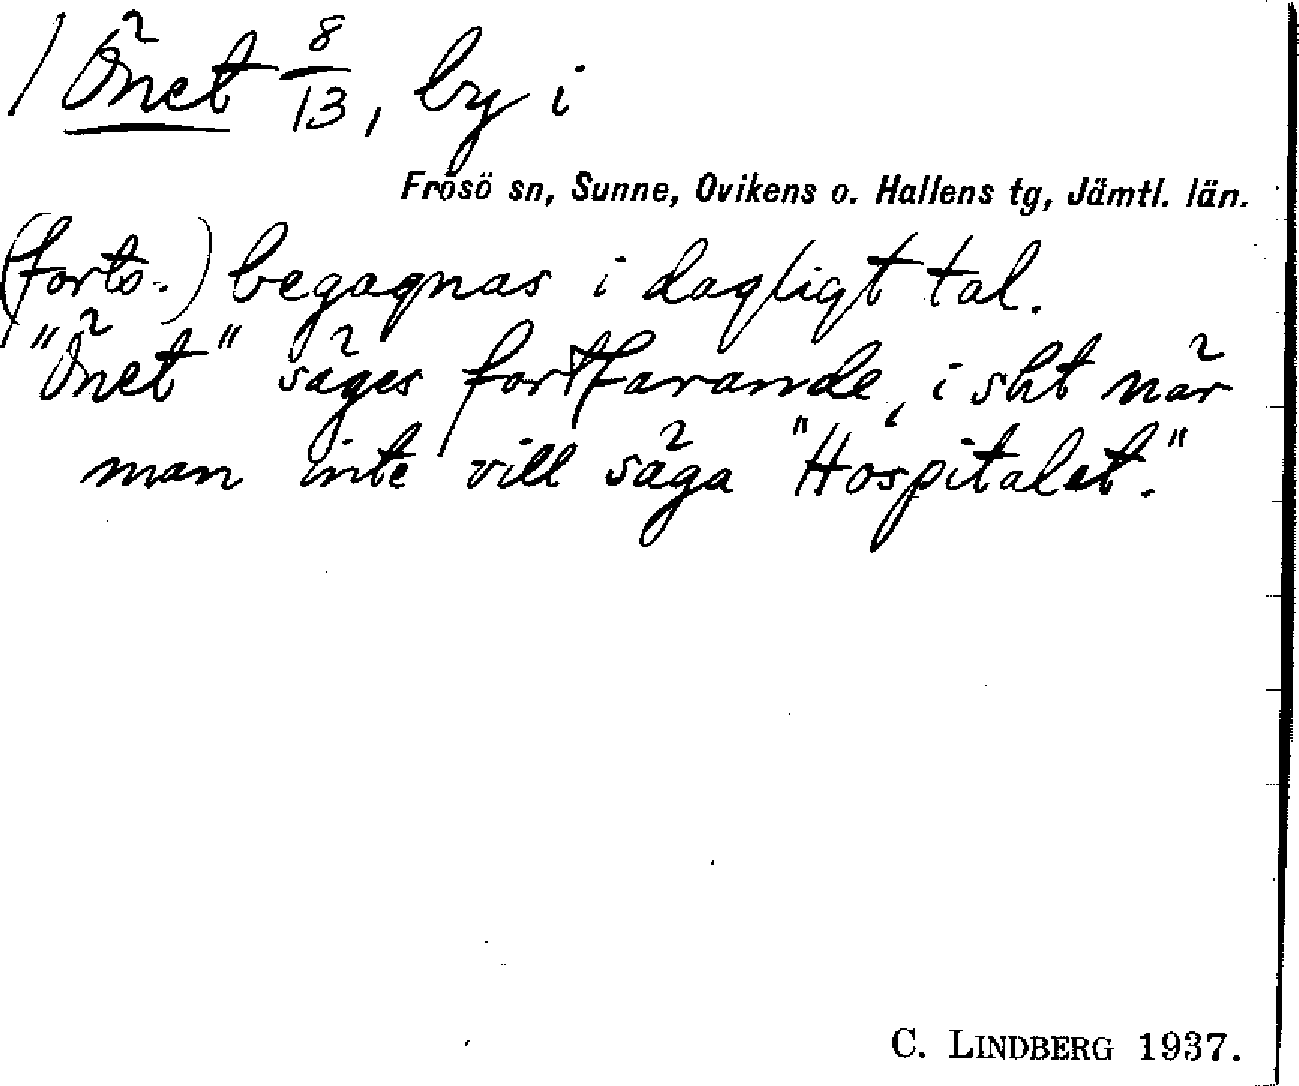 / Önet 8/13, by i
Frösö sn, Sunne, Ovikens o. Hallens tg, Jämtl. län.
(forts.) begagnas i dagligt tal.
"Önet" säges fortfarande, i sht när
man inte vill säga "Hospitalet."
C. LINDBERG 1937.